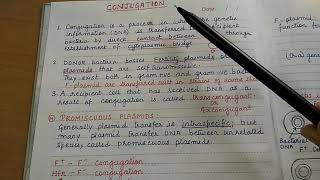 CONJUGATION
Date
1. Conjugation is a process in which genetic
information (DNA) is transferred
bacteria by direct contact between
establishment of cytoplasmic bridge
2. DONOR bacteria posses Fertility plasmids
plasmids that are self transmissible.
They exist both in gram +ve and gram -ve bact
F-plasmid are transfered with in strains of same
3. A recipient cell that has received DNA as a
result of conjugation is called transconjugant
OR
Exconjugant
PROMISCUOUS PLASMIDS:
Generally plasmid transfer is intraspecific, but
many plasmid transfer DNA between unrelated
Species called promiscuous plasmids.
F+ - F- conjugation
Hfr - F- conjugation
F-plasmid
Bacterial
DNA